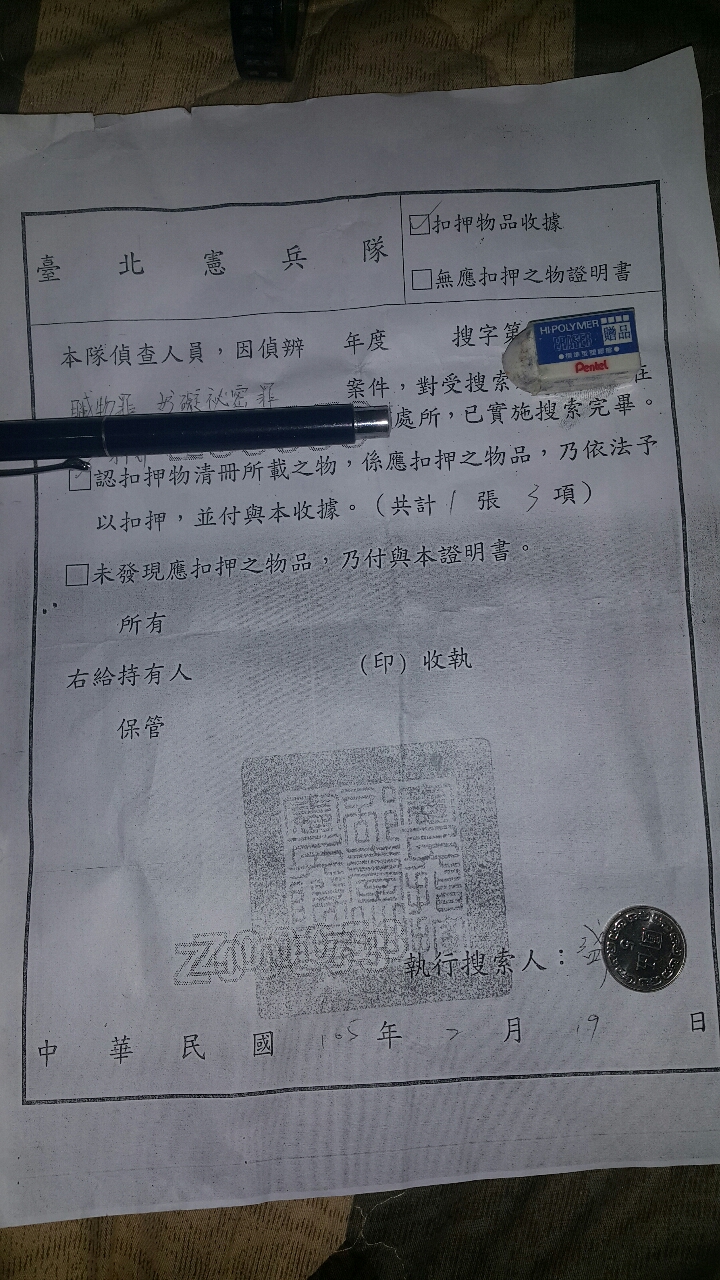 臺北憲兵隊
☑扣押物品收據
☐無應扣押之物證明書
本隊偵查人員，因偵辨 年度 搜字第
贓物罪 妨礙祕密罪 案件，對受搜索 在
處所，已實施搜索完畢。
認扣押物清冊所載之物，係應扣押之物品，乃依法予
以扣押，並付與本收據。（共計1張3項）
☐未發現應扣押之物品，乃付與本證明書。
所有
右給持有人 （印）收執
保管
執行搜索人：
中華民國105年2月19日
HI-POLYMER
贈品
Pentel